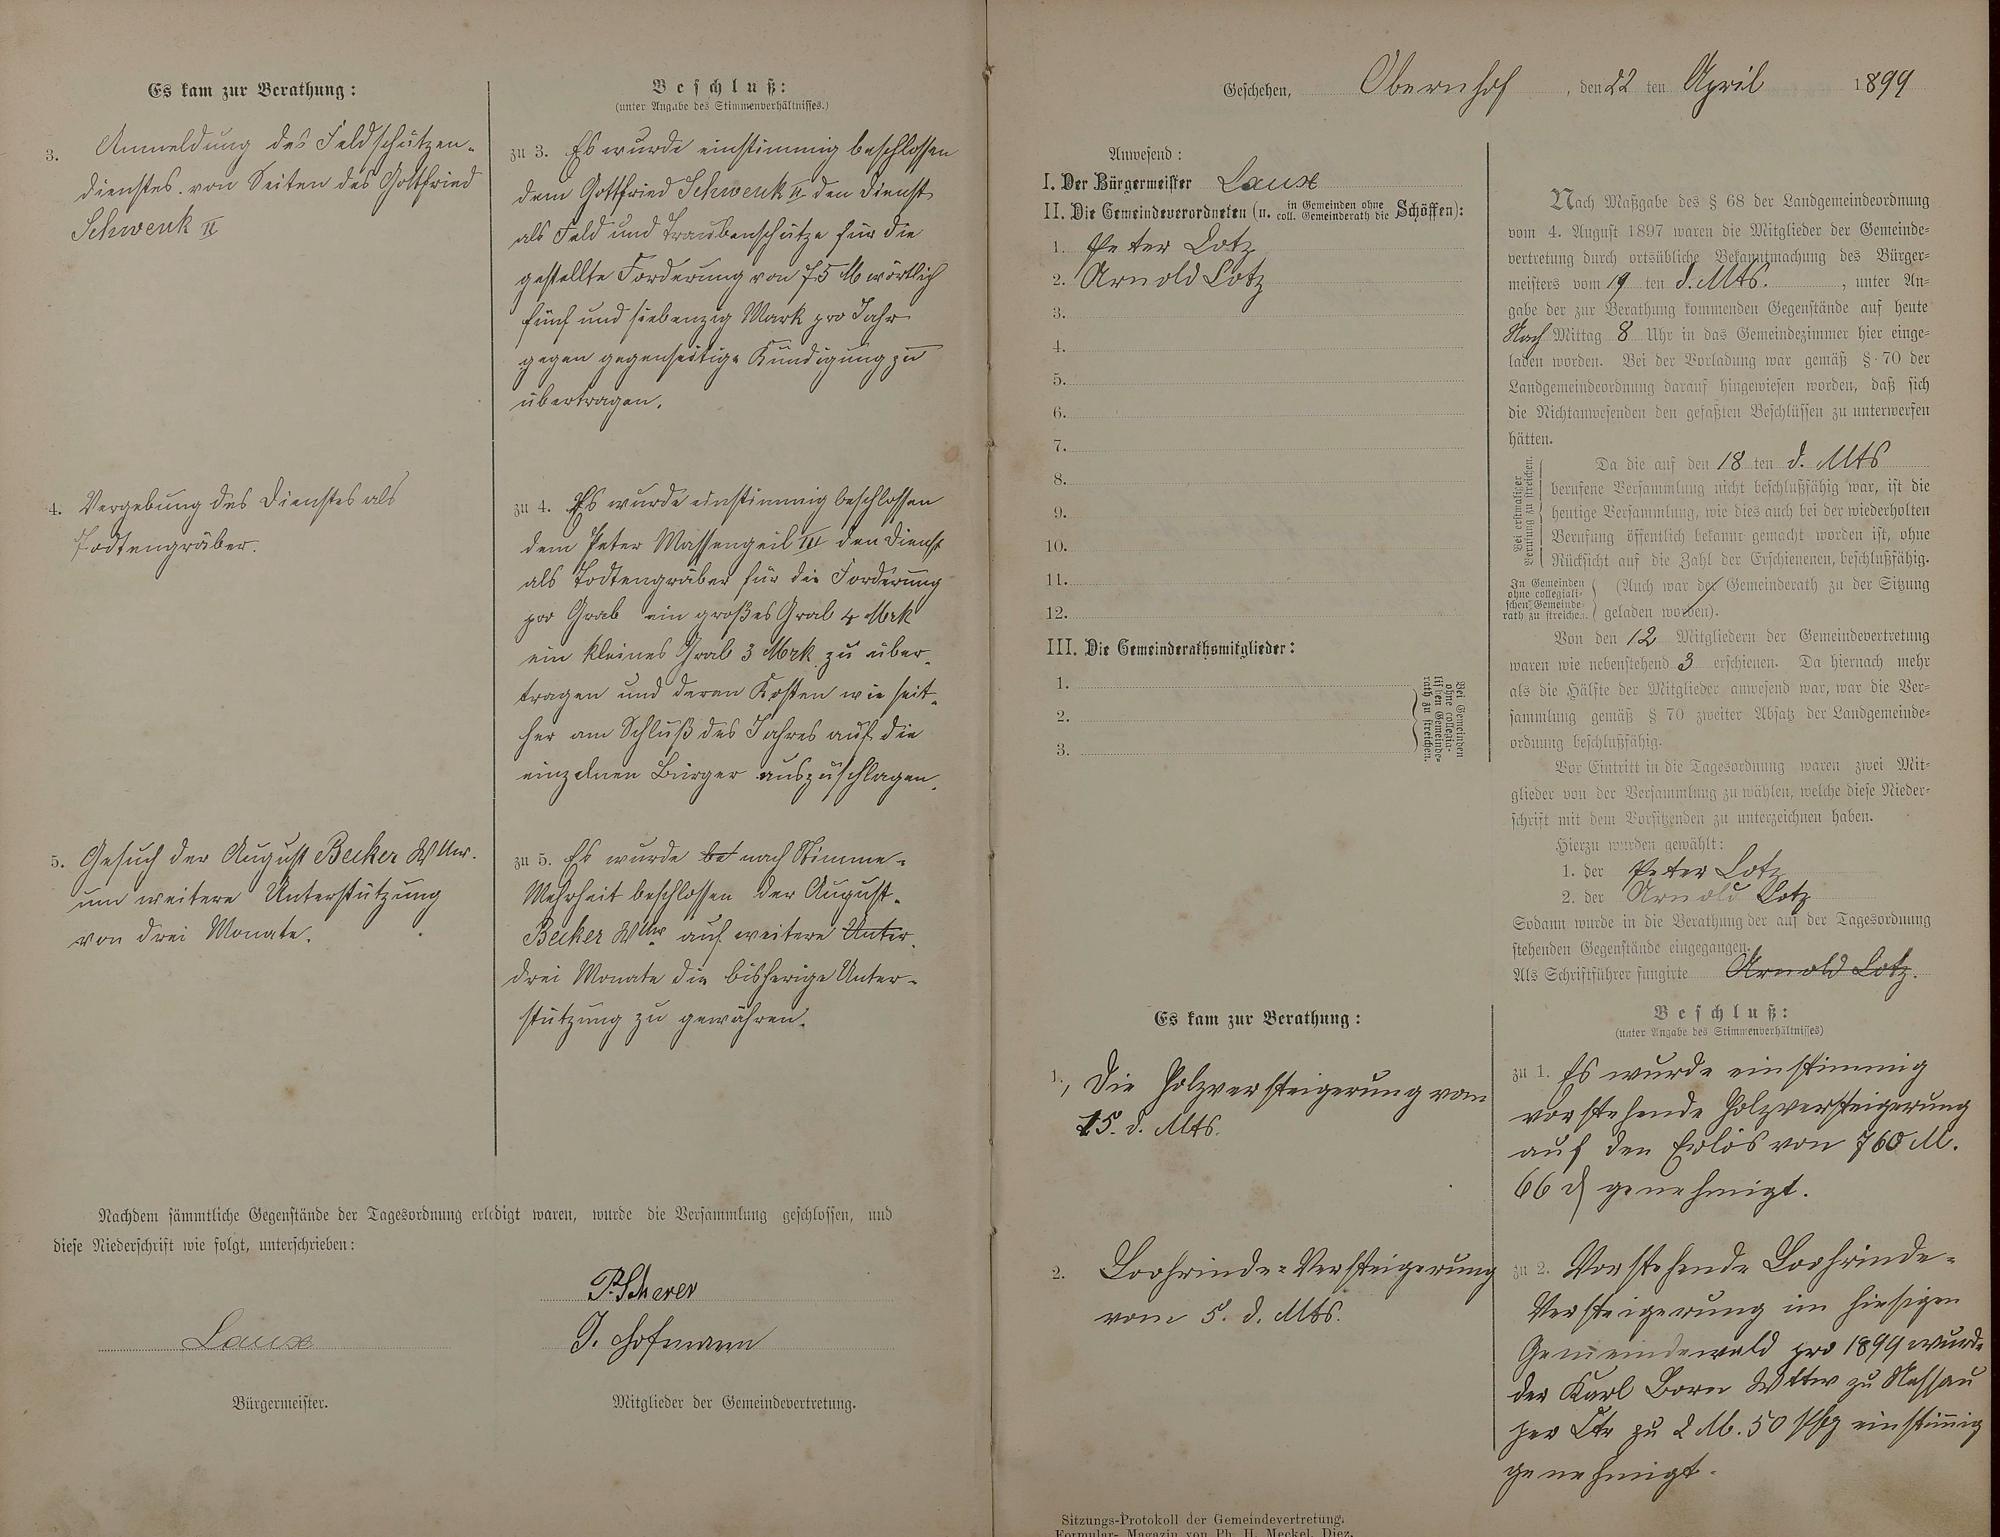 Es kam zur Berathung:
3. Anmeldung des Feldschützen-
dienstes von Seiten des Gottfried
Schwenk II
4. Vergebung des Dienstes als
Todtengräber.
5. Gesuch der August Becker Wttw.
um weitere Unterstützung
von drei Monate.
Beschluß:
(unter Angabe des Stimmenverhältnisses.)
zu 3. Es wurde einstimmig beschlossen
dem Gottfried Schwenk II den Dienst
als Feld und Traubenschütze für die
gestellte Forderung von 75 M wörtlich
fünf und siebenzig Mark pro Jahr
gegen gegenseitige Kündigung zu
übertragen.
zu 4. Es wurde einstimmig beschlossen
dem Peter Massengeil III den Dienst
als Todtengräber für die Forderung
pro Grab ein großes Grab 4 Mrk
ein kleines Grab 3 Mrk zu über-
tragen und deren Kosten wie seit-
her am Schluß des Jahres auf die
einzelnen Bürger auszuschlagen.
zu 5. Es wurde be nach Stimme-
Mehrheit beschlossen der August-
Becker Wttw auf weitere Unter-
drei Monate die bisherige Unter-
stützung zu gewähren.
Nachdem sämmtliche Gegenstände der Tagesordnung erledigt waren, wurde die Versammlung geschlossen, und
diese Niederschrift wie folgt, unterschrieben:
P. Scherer
Laux
J. Hofmann
Bürgermeister.
Mitglieder der Gemeindevertretung.
Geschehen, Obernhof, den 22 ten April 1899
Anwesend:
I. Der Bürgermeister Laux
II. Die Gemeindeverordneten (u. in Gemeinden ohne coll. Gemeinderath die Schöffen):
1. Peter Lotz
2. Arnold Lotz
3.
4.
5.
6.
7.
8.
9.
10.
11.
12.
III. Die Gemeinderathsmitglieder:
1.
2.
3.
Bei Gemeinden
ohne collegia-
lischen Gemeinde-
rath zu streichen.
Nach Maßgabe des § 68 der Landgemeindeordnung
vom 4. August 1897 waren die Mitglieder der Gemeinde-
vertretung durch ortsübliche Bekanntmachung des Bürger-
meisters vom 19 ten d. Mts., unter An-
gabe der zur Berathung kommenden Gegenstände auf heute
Nach Mittag 8 Uhr in das Gemeindezimmer hier einge-
laden worden. Bei der Vorladung war gemäß § 70 der
Landgemeindeordnung darauf hingewiesen worden, daß sich
die Nichtanwesenden den gefaßten Beschlüssen zu unterwerfen
hätten.
Bei erstmaliger
Berufung zu streichen.
Da die auf den 18 ten d. Mts
berufene Versammlung nicht beschlußfähig war, ist die
heutige Versammlung, wie dies auch bei der wiederholten
Berufung öffentlich bekannt gemacht worden ist, ohne
Rücksicht auf die Zahl der Erschienenen, beschlußfähig.
In Gemeinden
ohne collegiali-
schen Gemeinde-
rath zu streichen.
(Auch war der Gemeinderath zu der Sitzung
geladen worden).
Von den 12 Mitgliedern der Gemeindevertretung
waren wie nebenstehend 3 erschienen. Da hiernach mehr
als die Hälfte der Mitglieder anwesend war, war die Ver-
sammlung gemäß § 70 zweiter Absatz der Landgemeinde-
ordnung beschlußfähig.
Vor Eintritt in die Tagesordnung waren zwei Mit-
glieder von der Versammlung zu wählen, welche diese Nieder-
schrift mit dem Vorsitzenden zu unterzeichnen haben.
Hierzu wurden gewählt:
1. der Peter Lotz
2. der Arnold Lotz
Sodann wurde in die Berathung der auf der Tagesordnung
stehenden Gegenstände eingegangen.
Als Schriftführer fungirte Arnold Lotz.
Es kam zur Berathung:
1., Die Holzversteigerung vom
15. d. Mts.
2. Lohrinde-Versteigerung
vom 5. d. Mts.
Beschluß:
(unter Angabe des Stimmenverhältnisses)
zu 1. Es wurde einstimmig
vorstehende Holzversteigerung
auf den Erlös von 760 M.
66 ₰ genehmigt.
zu 2. Vorstehende Lohrinde-
Versteigerung im hiesigen
Gemeindewald pro 1899 wurde
der Karl Born Wttw zu Nassau
per Ctr zu 2 M. 50 Pfg einstimig
genehmigt.
Sitzungs-Protokoll der Gemeindevertretung.
Formular-Magazin von Ph. H. Meckel, Diez.